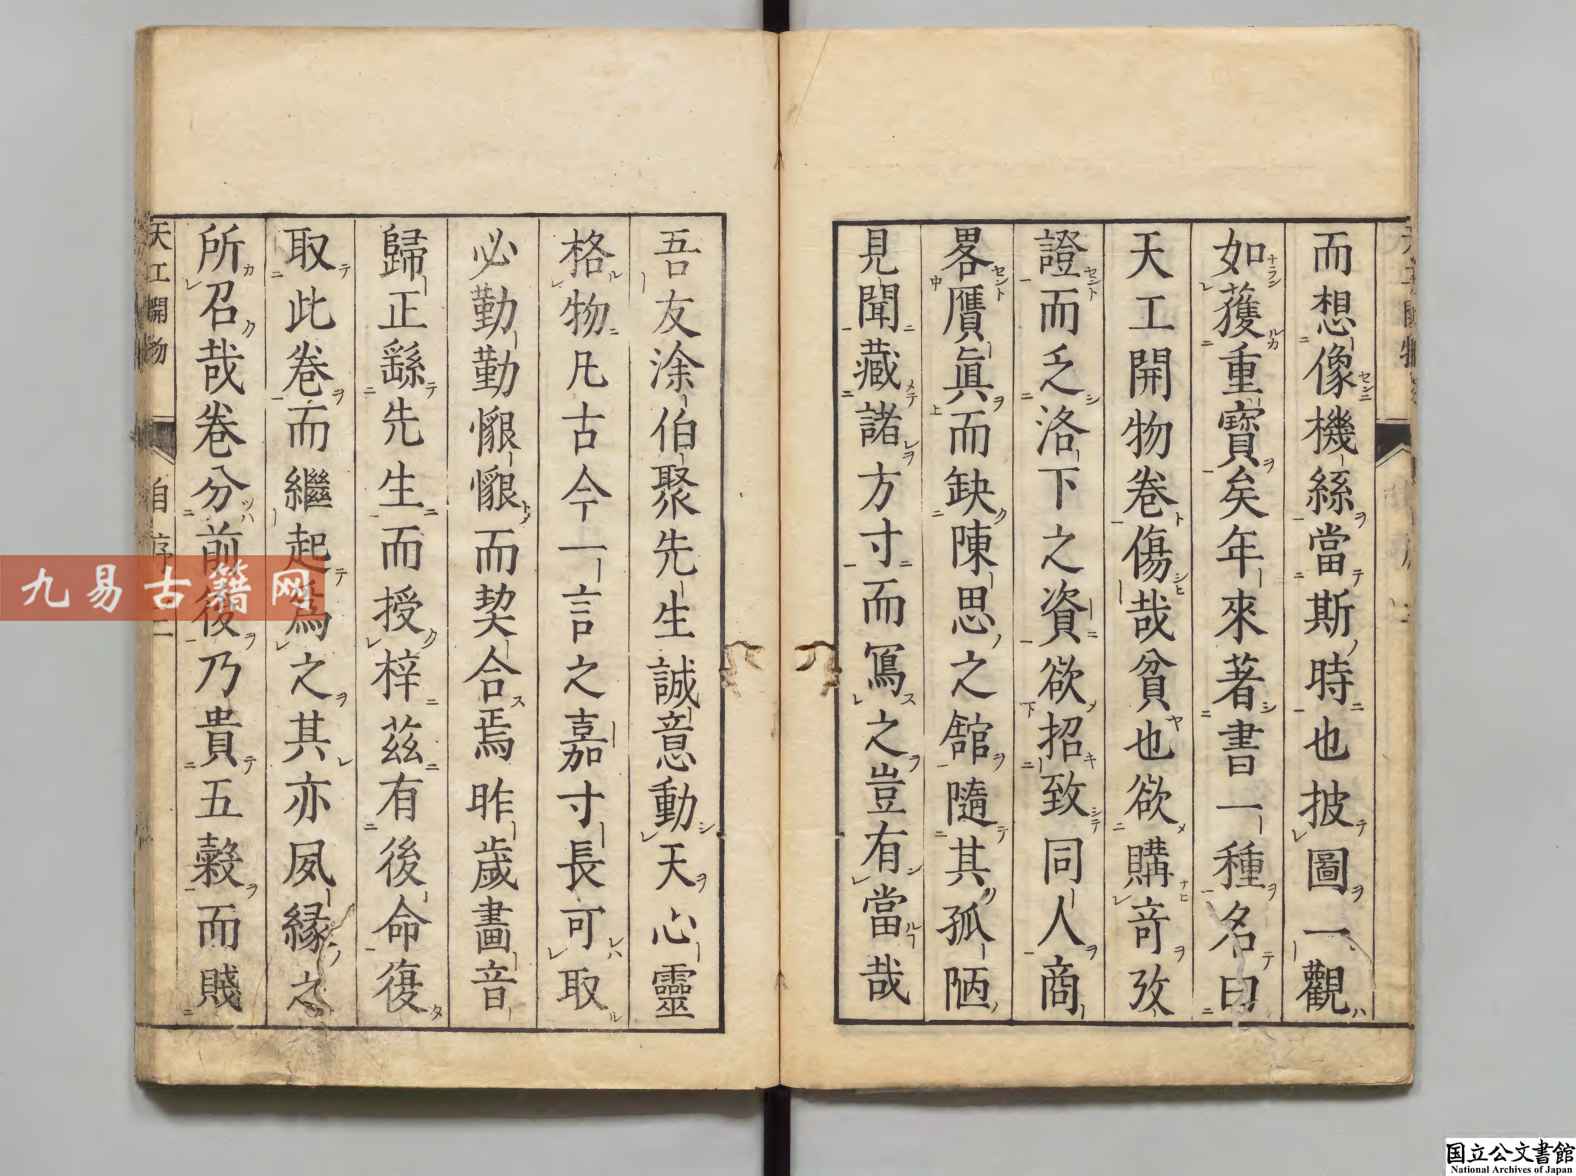 而想像機絲當斯時也披圖一觀
如獲重寳矣年來著書一種名曰
天工開物卷傷哉貧也欲購奇攷
證而乏洛下之資欲招致同人商
畧贋眞而缺陳思之舘隨其孤陋
見聞藏諸方寸而寫之豈有當哉
吾友涂伯聚先生誠意動天心靈
格物凡古今一言之嘉寸長可取
必勤勤懇懇而契合焉昨歲畫音
歸正繇先生而授梓茲有後命復
取此卷而繼起爲之其亦夙縁之
所召哉卷分前後乃貴五糓而賤
天工開物
自序
二
九易古籍网
国立公文書館
National Archives of Japan